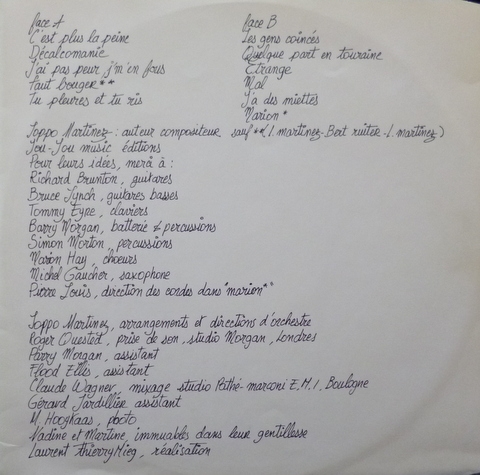 face A
C'est plus la peine
Décalcomanie
J'ai pas peur j'm'en fous
Faut bouger**
Tu pleures et tu ris
face B
Les gens coincés
Quelque part en touraine
Etrange
Mal
Y'a des miettes
Marion*
Toppo Martinez : auteur compositeur sauf **(I. martinez-Bert ruiter-I. martinez)
You-You music éditions
Pour leurs idées, merci à :
Richard Brunton, guitares
Bruce Lynch, guitares basses
Tommy Eyre, claviers
Barry Morgan, batterie & percussions
Simon Morton, percussions
Marion Hay, choeurs
Michel Gaucher, saxophone
Pierre Louis, direction des cordes dans "marion*"
Toppo Martinez, arrangements et directions d'orchestre
Roger Quested, prise de son, studio Morgan, Londres
Parry Morgan, assistant
Flood Ellis, assistant
Claude Wagner, mixage studio Pathé-marconi E.M.I. Boulogne
Gérard Jardillier assistant
M. Hooghaas, photo
Nadine et Martine, immuables dans leur gentillesse
Laurent Thierry Mieg, réalisation